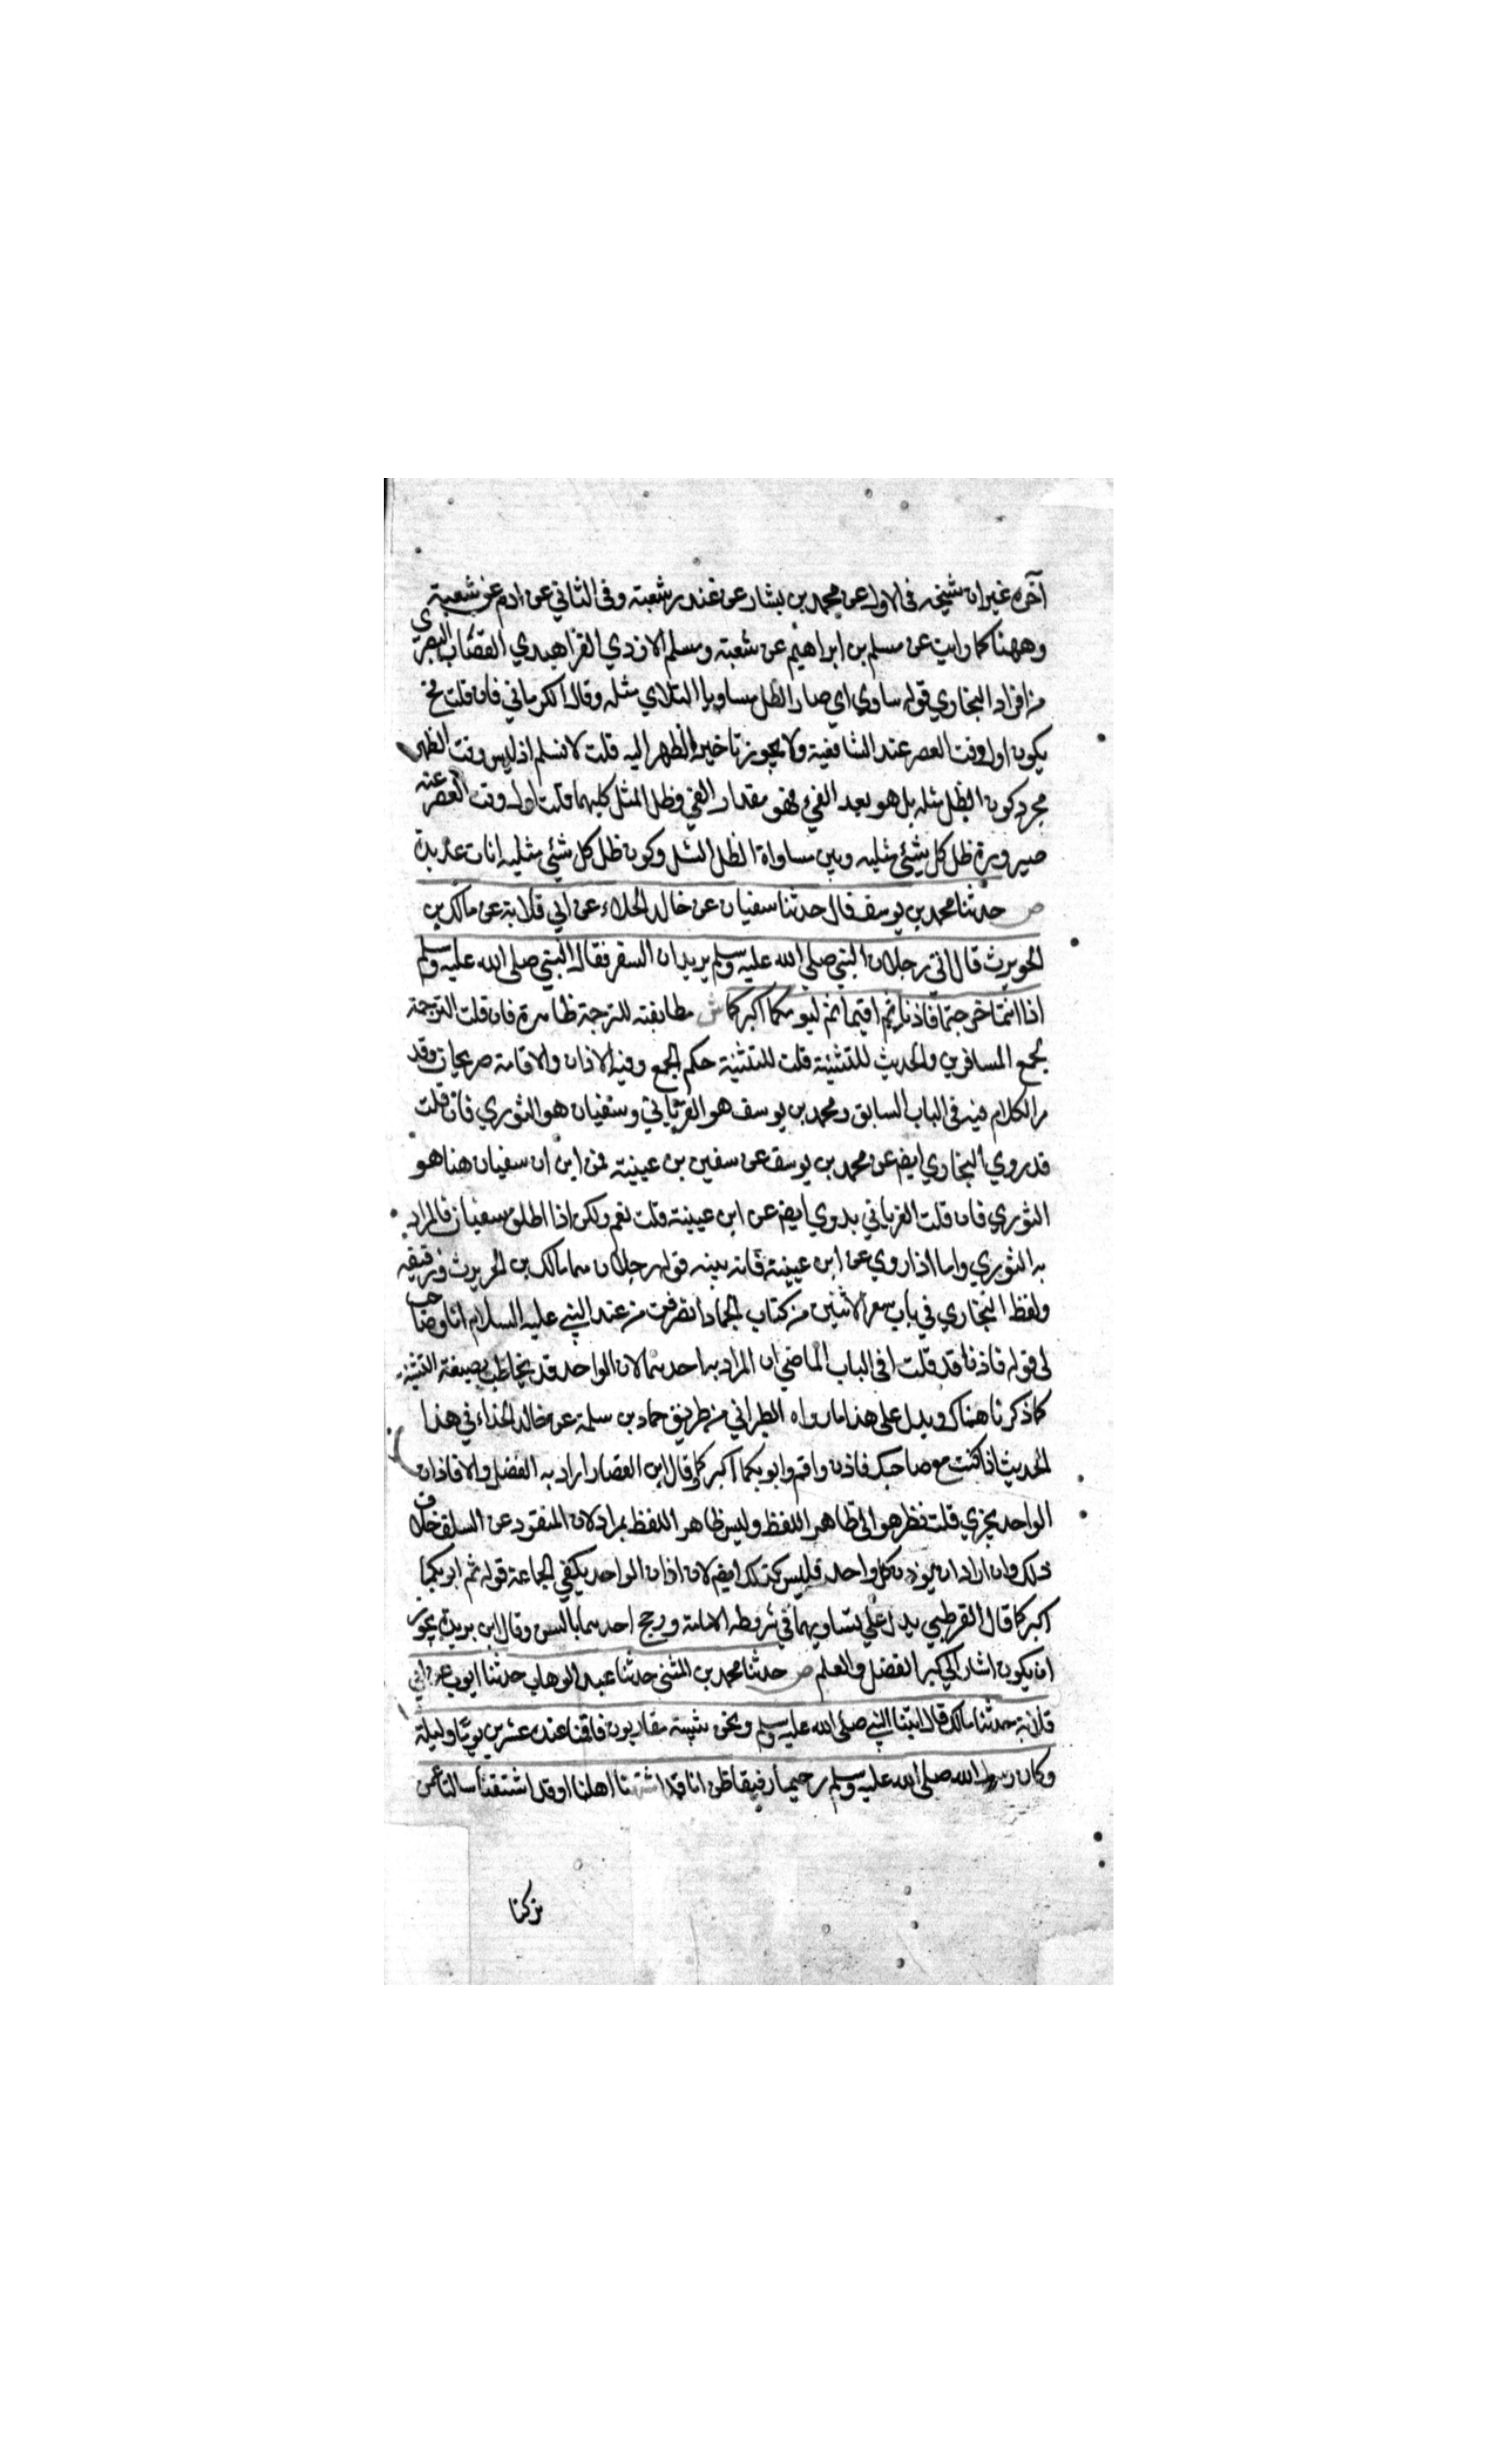 آخره غير ان شيخه فى الاول عن محمد بن بشار عن غندر شعبة وفى الثاني عن ادم عن شعبة
وههنا كما رايت عن مسلم بن ابراهيم عن شعبة ومسلم الازدي الفراهيدي القصاب البصري
من افراد البخاري قوله ساوي اي صار الظل مساويا التلاي مثله وقال الكرماني فان قلت فح
يكون اول وقت العصر عند الشافعية ولا يجوز تاخير الظهر اليه قلت لا نسلم اذ ليس وقت الظهر
مجرد كون الظل مثله بل هو بعد الفيء فهو مقدار الفي وظل المثل كليهما قلت اول وقت العصر عنه
صيرورة ظل كل شيئ مثليه وبين مساواة الظل المثل وكون ظل كل شيئ مثليه انات عديدة
ص حدثنا محمد بن يوسف قال حدثنا سفيان عن خالد الحذاء عن ابي قلابة عن مالك بن
الحويرث قال اتي رجلان النبي صلي الله عليه وسلم يريدان السفر فقال النبي صلى الله عليه وسلم
اذا انتما خرجتما فاذنا ثم اقيما ثم ليومكما اكبركما ش مطابقته للترجمة ظاهرة فان قلت الترجمة
لجمع المسافرين والحديث للتثنية قلت للتثنية حكم الجمع وفيه الاذان والاقامة صريحان وقد
مر الكلام فيه فى الباب السابق ومحمد بن يوسف هو الفريابي وسفيان هو الثوري فان قلت
قد روي البخاري ايضا عن محمد بن يوسف عن سفين بن عيينة فمن اين ان سفيان هنا هو
الثوري فان قلت الفريابي يروي ايضا عن ابن عيينة قلت نعم ولكن اذا اطلق سفيان فالمراد
به الثوري واما اذا روي عن ابن عيينة فانه بينه قوله رجلان هما مالك بن الحويرث ورفيقه
ولفظ البخاري في باب سفر الاثنين من كتاب الجهاد انصرفت من عند النبي عليه السلام انا وصاحب
لى قوله فاذنا قد قلت فى الباب الماضي ان المراد به احدهما لان الواحد قد يخاطب بصيغة التثنية
كما ذكرنا هناك ويدل على هذا ما رواه الطبراني من طريق حماد بن سلمة عن خالد الحذاء في هذا
الحديث اذا كنت مع صاحبك فاذن واقم وليؤمكما اكبركما وقال ابن القصار اراد به الفضل والا فاذان
الواحد يجزي قلت نظر هو الى ظاهر اللفظ وليس ظاهر اللفظ بمراد لان المنقود عن السلف خلاف
ذلك وان اراد ان يوذن كل واحد فليس كذلك ايضا لان اذان الواحد يكفي الجماعة قوله ثم ليؤمكما
اكبركما قال القرطبي يدل علي تساويهما في شروط الامامة ورجح احدهما بالسن وقال ابن بريزة يجوز
ان يكون اشار الي كبر الفضل والعلم ص حدثنا محمد بن المثنى حدثنا عبد الوهاب حدثنا ايوب عن ابي
قلابة حدثنا مالك قال اتينا النبي صلي الله عليه وسلم ونحن شببة متقاربون فاقمنا عنده عشرين يوما وليلة
وكان رسول الله صلي الله عليه وسلم رحيما رفيقا ظن انا قد اشتهنا اهلنا او قد اشتقنا سالنا عمن
تركنا